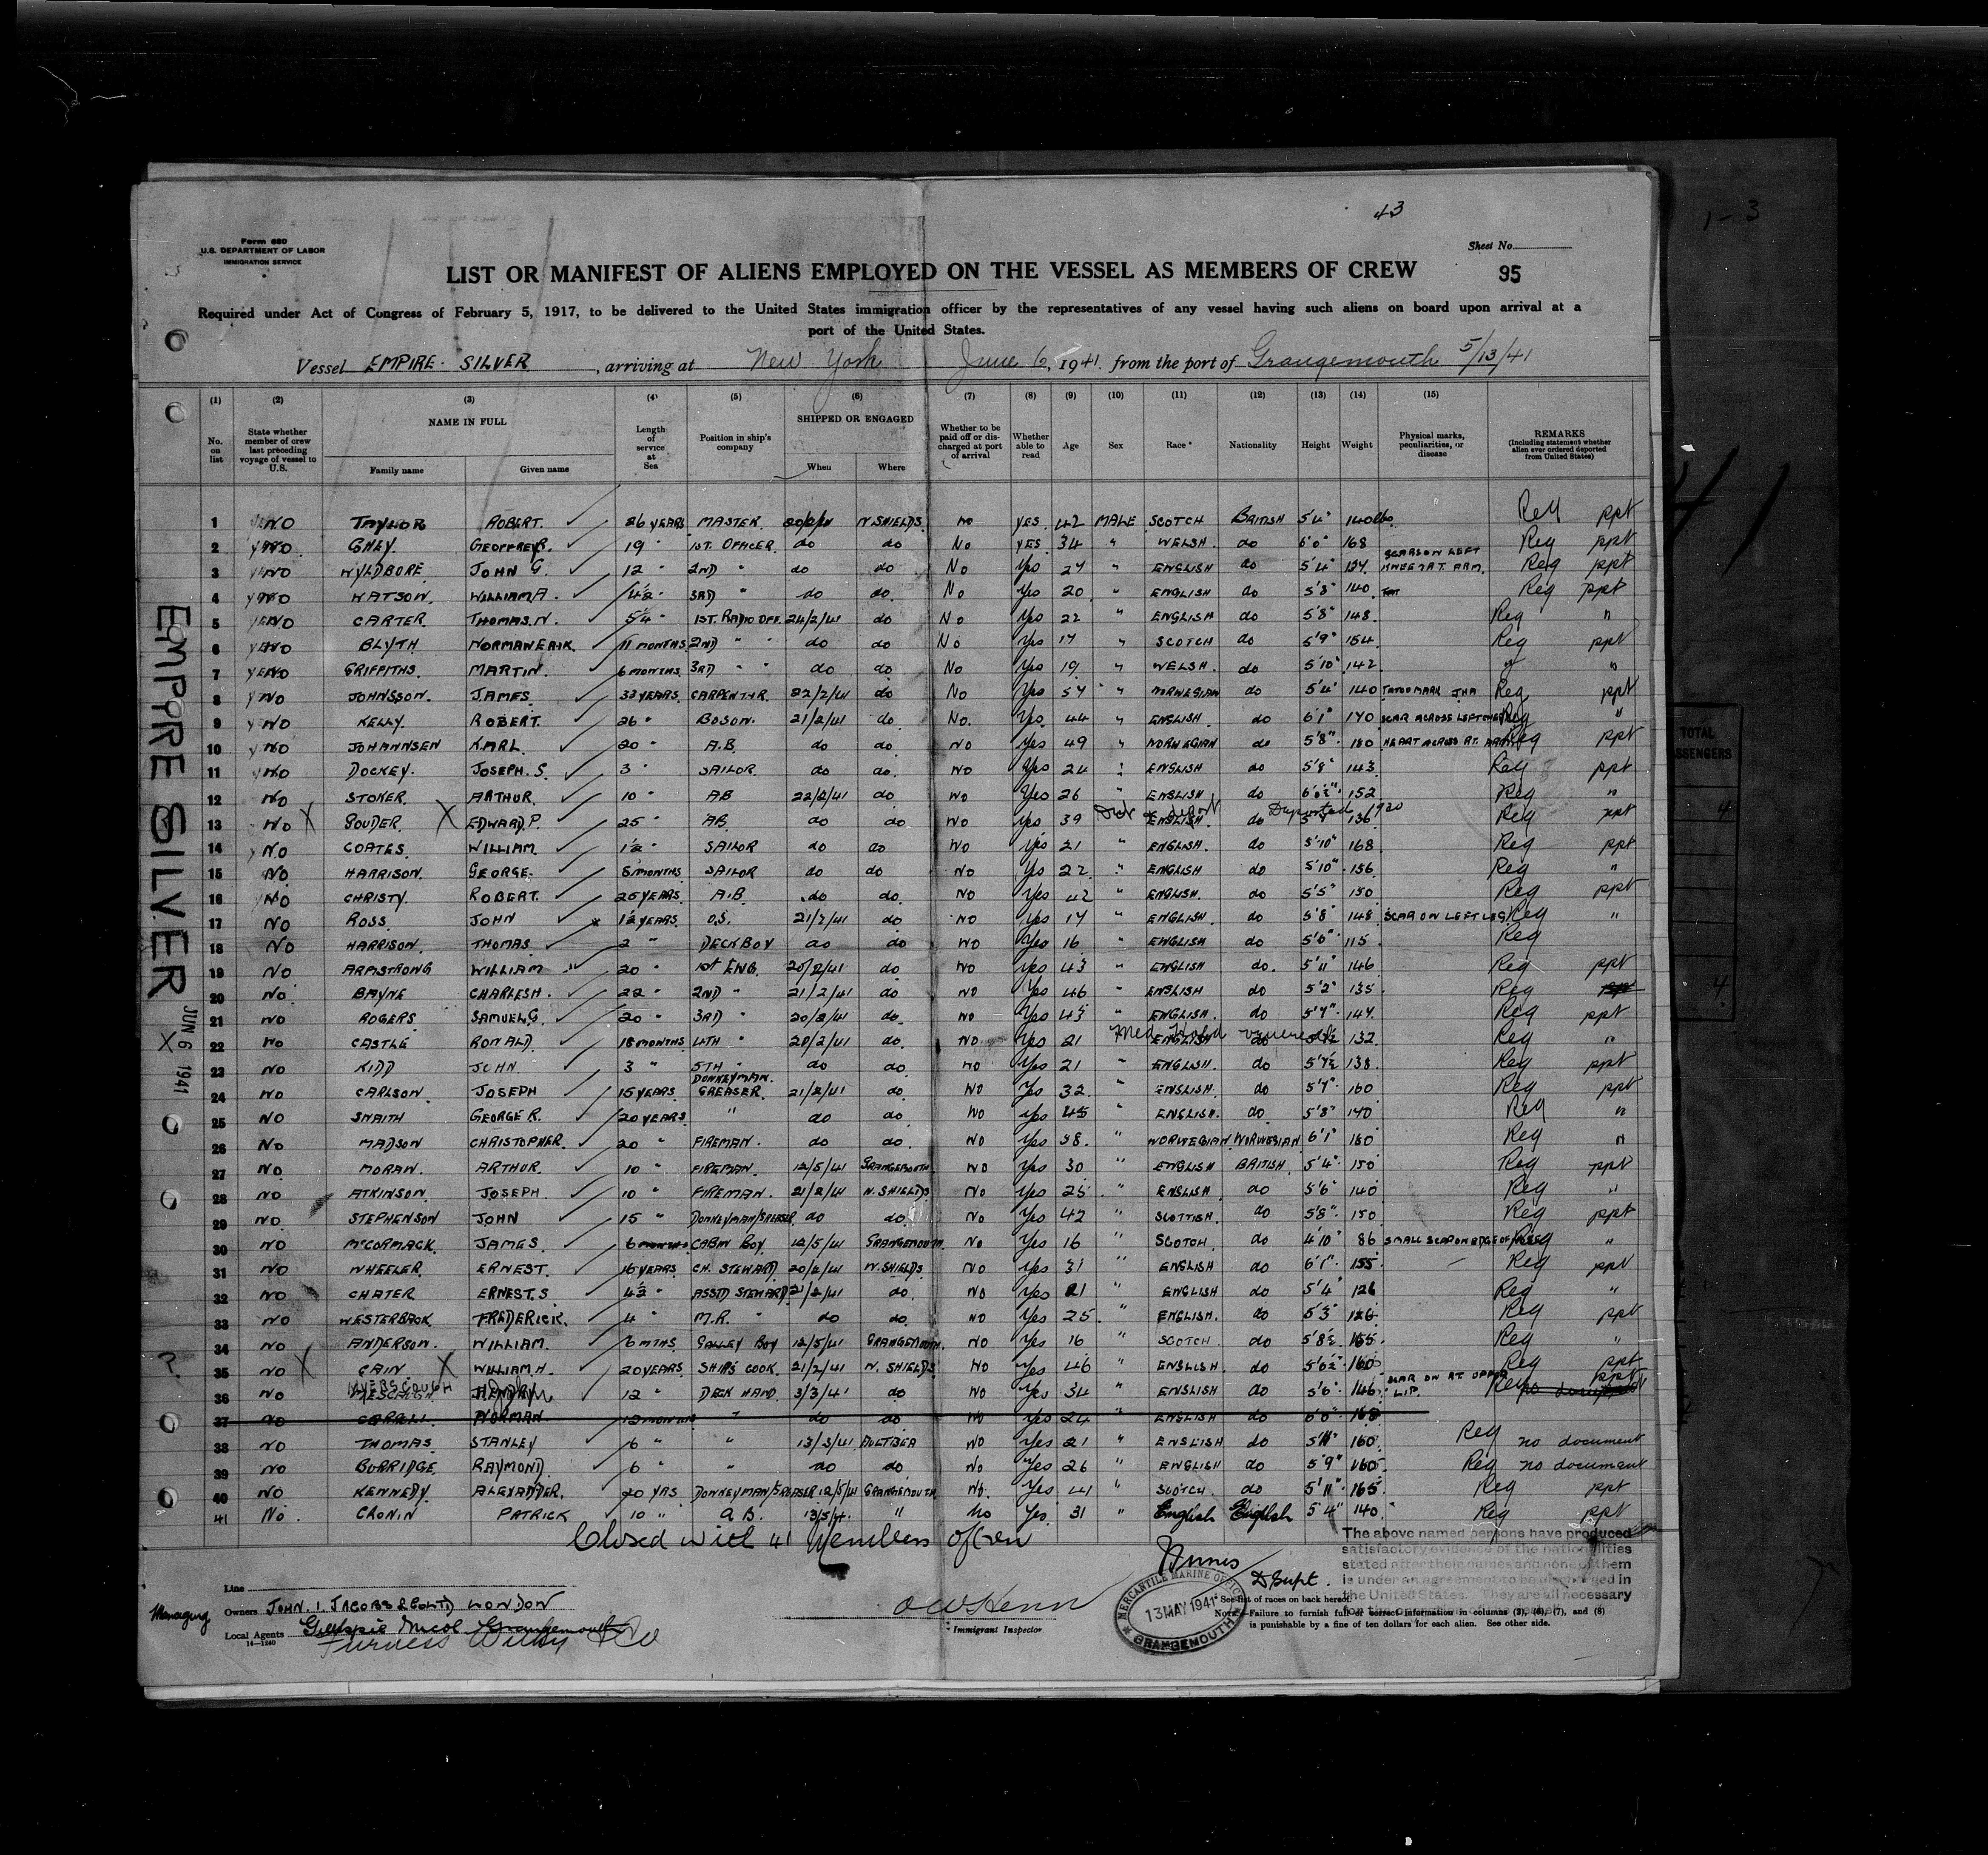 43
1-3
Form 680
U.S. DEPARTMENT OF LABOR
IMMIGRATION SERVICE
Sheet No.
LIST OR MANIFEST OF ALIENS EMPLOYED ON THE VESSEL AS MEMBERS OF CREW
95
Required under Act of Congress of February 5, 1917, to be delivered to the United States immigration officer by the representatives of any vessel having such aliens on board upon arrival at a
port of the United States.
Vessel EMPIRE SILVER, arriving at New York June 6, 1941. from the port of Grangemouth 5/13/41
(1) (2) (3) (4) (5) (6) (7) (8) (9) (10) (11) (12) (13) (14) (15)
No. on list State whether member of crew last preceding voyage of vessel to U.S. NAME IN FULL Family name Given name Length of service at Sea Position in ship's company SHIPPED OR ENGAGED When Where Whether to be paid off or discharged at port of arrival Whether able to read Age Sex Race* Nationality Height Weight Physical marks, peculiarities, or disease REMARKS (Including statement whether alien ever ordered deported from United States)
1 NO TAYLOR ROBERT. 26 YEARS MASTER N.SHIELDS. NO YES 42 MALE SCOTCH BRITISH 5'4" 140lbs. Reg ppt
2 NO GEOFFREY R. 19 " 1ST. OFFICER do do No YES 34 " WELSH. do 6'0" 168 Reg ppt
3 NO WYLDBORE JOHN G. 12 " 2ND " do do No Yes 27 " ENGLISH do 5'4" 134. SCARS ON LEFT KNEE & RT. ARM. Reg ppt
4 NO WATSON. WILLIAM A. 4½ " 3RD " do do. No Yes 20 " ENGLISH do 5'8" 140. Reg ppt
5 NO CARTER THOMAS. N. 5¼ " 1ST. RADIO OFF. 24/2/41 do No Yes 22 " ENGLISH do 5'8" 148. Reg "
6 NO BLYTH NORMAN ERIK. 11 MONTHS 2ND " " do do No Yes 17 " SCOTCH do 5'9" 154. Reg ppt
7 NO GRIFFITHS. MARTIN. 6 MONTHS. 3RD " " do do No Yes 19 " WELSH. do 5'10" 142. " "
8 NO JOHNSSON. JAMES. 33 YEARS. CARPENTER. 22/2/41 do No Yes 57 " NORWEGIAN do 5'4" 140 TATOO MARK JHA Reg ppt
9 NO KELLY. ROBERT. 26 " BOSON. 21/2/41 do No. Yes. 44 " ENGLISH. do 6'1" 170 SCAR ACROSS LEFT Reg "
10 NO JOHANNSEN KARL. 20 " A.B. do do NO Yes 49 " NORWEGIAN do 5'8" 180 HEART ACROSS RT. ARM Reg ppt
11 NO DOCKEY. JOSEPH. S. 3 " SAILOR. do do. NO Yes 24 " ENGLISH do 5'8" 143. Reg ppt
12 NO STOKER. ARTHUR. 10 " AB 22/2/41 do NO Yes 26 " ENGLISH do 6'0½" 152 Reg "
13 NO X EDWARD. P. 25 " AB. do do NO Yes 39 ENGLISH. do Deported 1920 136 Reg ppt
14 NO COATES. WILLIAM. 1½ " SAILOR do do NO Yes 21 " ENGLISH. do 5'10" 168. Reg ppt
15 NO. HARRISON. GEORGE. 5 MONTHS. SAILOR do do NO Yes 22. " ENGLISH do 5'10" 156. Reg "
16 NO CHRISTY. ROBERT. 25 YEARS. A.B. do do. NO Yes 42 " ENGLISH. do 5'5" 150 Reg ppt
17 NO ROSS. JOHN 1½ YEARS. O.S. 21/2/41 do NO Yes 17 " ENGLISH. do 5'8" 148 SCAR ON LEFT LEG Reg "
18 NO HARRISON. THOMAS 2 " DECK BOY do do NO Yes 16 " ENGLISH do 5'0" 115. Reg
19 NO ARMSTRONG WILLIAM 20 " 1st ENG. 20/2/41 do. NO Yes 43 " ENGLISH do. 5'11" 146 Reg ppt
20 NO. BAYNE CHARLES H. 22 " 2ND " 21/2/41 do NO Yes 46 " ENGLISH do 5'2" 135. Reg ppt
21 NO ROGERS SAMUEL G. 20 " 3RD " 20/2/41 do. NO Yes 45 " ENGLISH. do 5'7" 147. Reg ppt
X 22 NO CASTLE RONALD. 18 MONTHS 4TH " 21/2/41 do. NO Yes 21 Med. Hold ENGLISH do 132 Reg "
23 NO KIDD JOHN. 3 " 5TH " do do. NO Yes 21 " ENGLISH. do 5'7½ 138. Reg ppt
24 NO CARLSON. JOSEPH 15 YEARS. DONKEYMAN. GREASER. 21/2/41 do. NO Yes 32. " ENGLISH. do 5'7" 160 Reg ppt
25 NO SNAITH GEORGE R. 20 YEARS. " do do. NO Yes 45 " ENGLISH. do. 5'8" 170 Reg "
26 NO MADSON CHRISTOPHER. 20 " FIREMAN. do do NO Yes 38. " NORWEGIAN NORWEGIAN 6'1" 180 Reg "
27 NO. MORAN. ARTHUR. 10 " FIREMAN. 12/5/41 GRANGEMOUTH. NO Yes 30 " ENGLISH BRITISH. 5'4" 150 Reg ppt
28 NO ATKINSON. JOSEPH. 10 " FIREMAN. 21/2/41 N. SHIELDS NO Yes 25 " ENGLISH do 5'6" 140 Reg "
29 NO. STEPHENSON JOHN 15 " DONKEYMAN/GREASER. do do. NO Yes 42 " SCOTTISH. do 5'8" 150 Reg ppt
30 NO McCORMACK. JAMES. 6 MONTHS CABIN BOY. 12/5/41 GRANGEMOUTH. NO Yes 16 " SCOTCH. do 4'10" 86 SMALL SCAR ON EDGE OF Reg "
31 NO WHEELER. ERNEST. 16 YEARS. CH. STEWARD 20/2/41 N. SHIELDS NO Yes 31 " ENGLISH do 6'1" 155. Reg ppt
32 NO CHATER ERNEST. S 4½ " ASSTD STEWARD 21/2/41 do. NO Yes 21 " ENGLISH do 5'4" 126 Reg "
33 NO WESTERBACK. FREDERICK. 4 " M.R. " do do. NO Yes 25. " ENGLISH. do 5'3" 126. Reg ppt
34 NO ANDERSON. WILLIAM. 6 MTHS. GALLEY BOY 12/5/41 GRANGEMOUTH. NO Yes 16 " SCOTCH. do 5'8½ 155. Reg "
? 35 NO X CAIN X WILLIAM H. 20 YEARS. SHIPS COOK. 21/2/41 N. SHIELDS NO Yes 46 " ENGLISH. do 5'6½" 160 Reg ppt
36 NO MYERSCOUGH 12 " DECK HAND 3/3/41 do NO Yes 34 " ENGLISH do 5'6" 146. SCAR ON RT UPPER LIP. Reg ppt
37 NO NORMAN 12 MONTHS " do do NO Yes 24 " ENGLISH do 6'0" 168
38 NO THOMAS STANLEY 6 " " 13/3/41 AULTBEA NO Yes 21 " ENGLISH do 5'11" 160. Reg no document
39 NO BURRIDGE. RAYMOND. 6 " " do do. No Yes 26 " ENGLISH do 5'9" 160. Reg no document
40 NO KENNEDY. ALEXANDER. 20 YRS. DONKEYMAN/GREASER 12/5/41 GRANGEMOUTH. No. Yes 41 " SCOTCH. do 5'11" 165. Reg ppt
41 No. CRONIN PATRICK 10 " A B. 13/5/41. " No Yes. 31 " English English 5'4" 140. Reg ppt
Closed with 41 Members of Crew
EMPIRE SILVER
JUN 6 1941
TOTAL
4
4
The above named persons have produced
satisfactory evidence of the nationalities
stated after their names and none of them
is under an agreement to be discharged in
the United States. They are all necessary
D Supt.
MERCANTILE MARINE OFFICE
13 MAY 1941
GRANGEMOUTH
Line
Managing Owners JOHN. I. JACOBS & CO LTD LONDON
Local Agents Gillespie Nicol Grangemouth
Furness Withy & Co
14—1240
Immigrant Inspector
*See list of races on back hereof.
NOTE.—Failure to furnish full or correct information in columns (3), (6), (7), and (8)
is punishable by a fine of ten dollars for each alien. See other side.